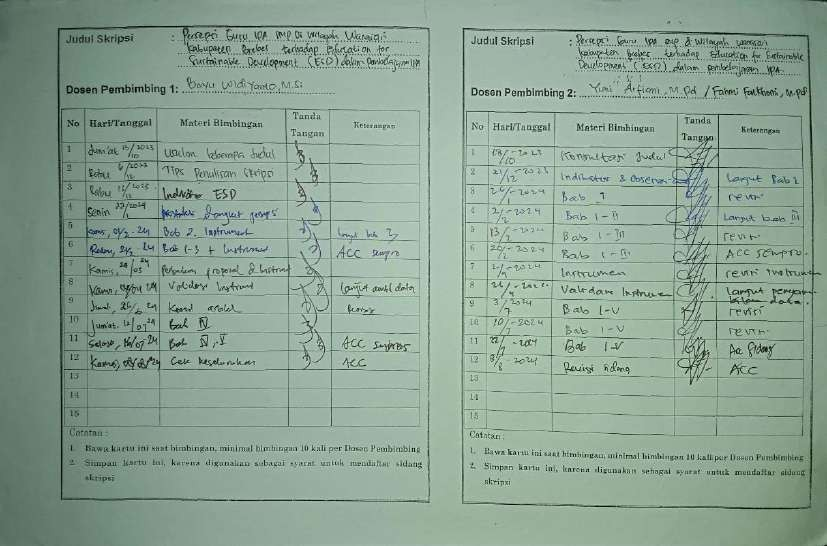 Judul Skripsi : Persepsi Guru IPA SMP Di Wilayah Wanasari
Kabupaten Brebes terhadap Education for
Sustainable Development (ESD) dalam Pembelajaran IPA
Dosen Pembimbing 1: Bayu Widiyanto, M.Si
No Hari/Tanggal Materi Bimbingan Tanda Tangan Keterangan
1 Jum'at 13/10 2023 Usulan beberapa Judul
2 Rabu 6/12 2023 Tips Penulisan Skripsi
3 Rabu 13/12 2023 Indikator ESD
4 Senin 22/1 2024
5 Kamis, 01/2 - 24 Bab 2. Instrument lanjut bab 3
6 Rabu, 21/2 24 Bab 1-3 + Instrument ACC sempro
7 Kamis, 03 24 proposal & Instrument
8 Validasi Instrument lanjut ambil data
9 24
10 Jum'at 12/07 24 Bab IV
11 Selasa, 16/07 24 Bab IV, V ACC
12 Kamis, 08/08 24 Cek Keseluruhan ACC
13
14
15
Catatan :
1. Bawa kartu ini saat bimbingan, minimal bimbingan 10 kali per Dosen Pembimbing
2. Simpan kartu ini, karena digunakan sebagai syarat untuk mendaftar sidang
skripsi
Judul Skripsi : Persepsi Guru IPA SMP di Wilayah Wanasari
Kabupaten Brebes terhadap Education for Sustainable
Development (ESD) dalam pembelajaran IPA
Dosen Pembimbing 2: Yuni Arfiani, M.Pd / Fahmi Fatkhomi, M.Pd
No Hari/Tanggal Materi Bimbingan Tanda Tangan Keterangan
1 /10 - 2023 Konsultasi Judul
2 21/12 - 2023 Indikator & Observasi Lanjut Bab 1
3 26/1 - 2024 Bab I revisi
4 2/2 - 2024 Bab I - II Lanjut bab III
5 13/2 - 2024 Bab I - III revisi
6 20/2 - 2024 Bab I - III ACC sempro
7 - 2024 Instrumen revisi Instrumen
8 26/4 - 2024 Validasi Instrumen Lanjut data
9 3/7 2024 Bab I-V revisi
10 10/7 - 2024 Bab I-V revisi
11 22/7 - 2024 Bab I-V Acc Sidang
12 8/8 - 2024 Revisi sidang ACC
13
14
15
Catatan :
1. Bawa kartu ini saat bimbingan, minimal bimbingan 10 kali per Dosen Pembimbing
2. Simpan kartu ini, karena digunakan sebagai syarat untuk mendaftar sidang
skripsi